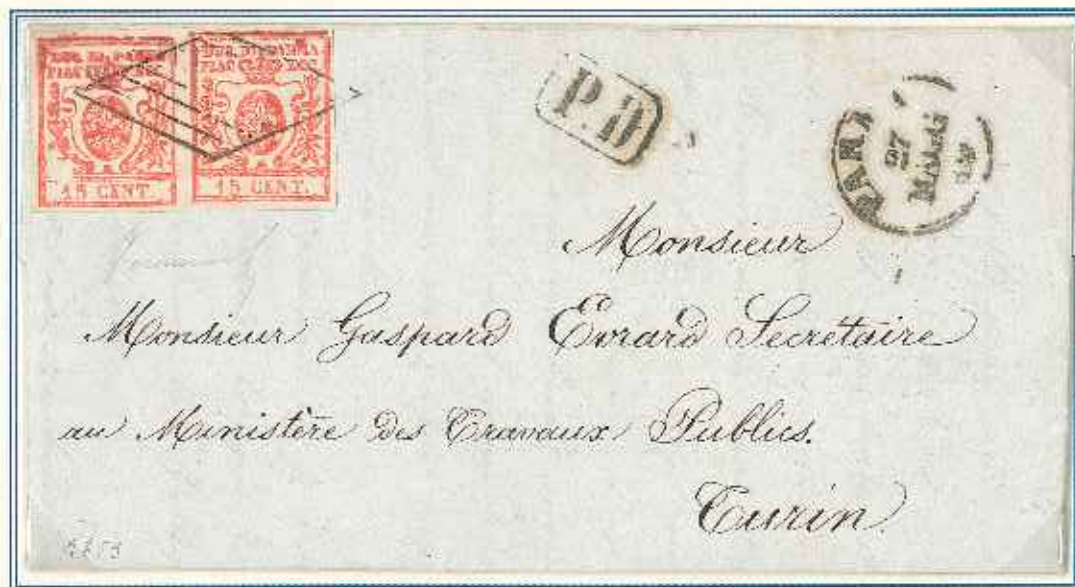 15 CENT.
15 CENT.
P.D
27
MAG
Monsieur
Monsieur Gaspard Evrard Secrétaire
au Ministère des Travaux Publics.
Turin